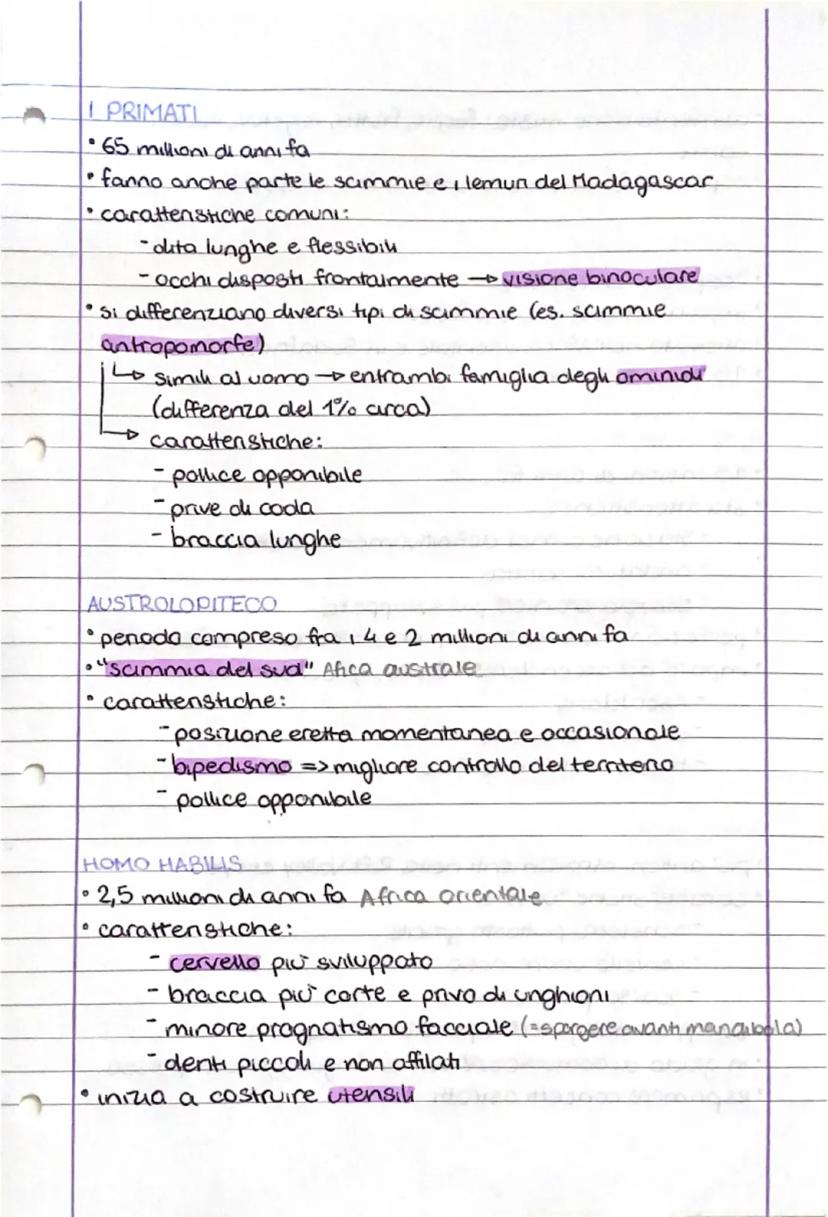 I PRIMATI
• 65 millioni di anni fa
• fanno anche parte le scimmie e i lemuri del Madagascar
• caratteristiche comuni:
- dita lunghe e flessibili
- occhi disposti frontalmente → visione binoculare
• si differenziano diversi tipi di scimmie (es. scimmie
antropomorfe)
↳ simili al uomo → entrambi famiglia degli ominidi
(differenza del 1% circa)
→ caratteristiche:
- pollice opponibile
- prive di coda
- braccia lunghe
AUSTROLOPITECO
• periodo compreso fra i 4 e 2 millioni di anni fa
• "scimmia del sud" Afica australe
• caratteristiche:
- posizione eretta momentanea e occasionale
- bipedismo => migliore controllo del territerio
- pollice opponibile
HOMO HABILIS
• 2,5 millioni di anni fa Africa orientale
• caratteristiche:
- cervello più sviluppato
- braccia più corte e privo di unghioni
- minore prognatismo facciale (=sporgere avanti mandibola)
- denti piccoli e non affilati
• inizia a costruire utensili